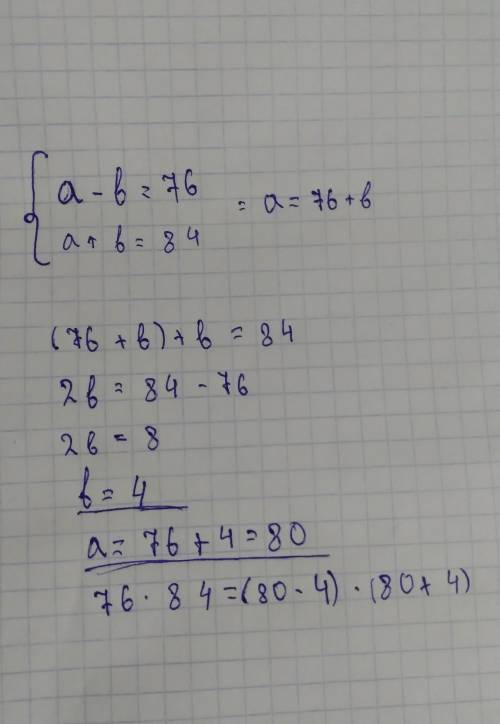 a - b = 76
a + b = 84
= a = 76 + b
(76 + b) + b = 84
2b = 84 - 76
2b = 8
b = 4
a = 76 + 4 = 80
76 · 84 = (80 - 4) · (80 + 4)